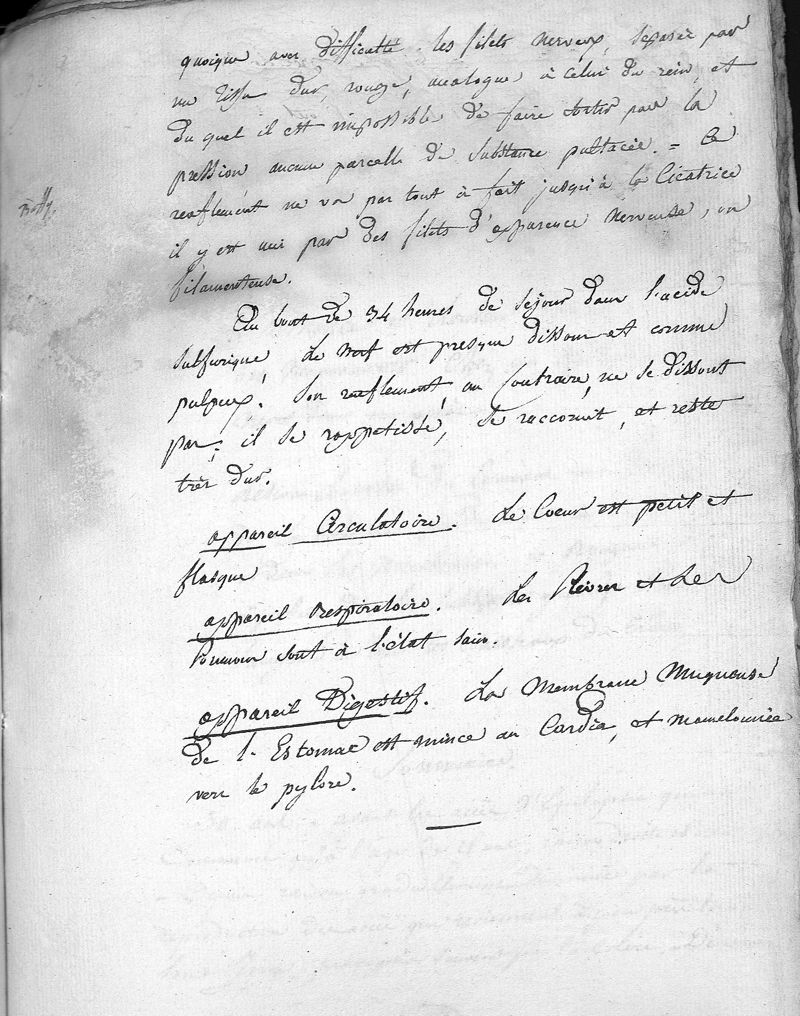 quoique avec difficulté les filets nerveux, séparés par
un tissu dur, rouge, analogue à celui du rein, et
du quel il est impossible de faire sortir par la
pression, aucune parcelle de substance pultacée. = Ce
renflement ne va pas tout à fait jusqu'à la Cicatrice
il y est uni par des filets d'apparence nerveuse, ou
filamenteuse.
Au bout de 34 heures de séjour dans l'acide
sulfurique, Le nerf est presque dissous et comme
pulpeux. Son renflement, au Contraire, ne se dissout
pas; il se rappetisse, se raccornit, et reste
très dur.
appareil Circulatoire. Le Coeur est petit et
flasque
appareil respiratoire. Les Plèvres et Les
Poumons sont à l'état sain.
appareil Digestif. La Membrane Muqueuse
de l'Estomac est mince au Cardia, et mamelonnée
vers le pylore.